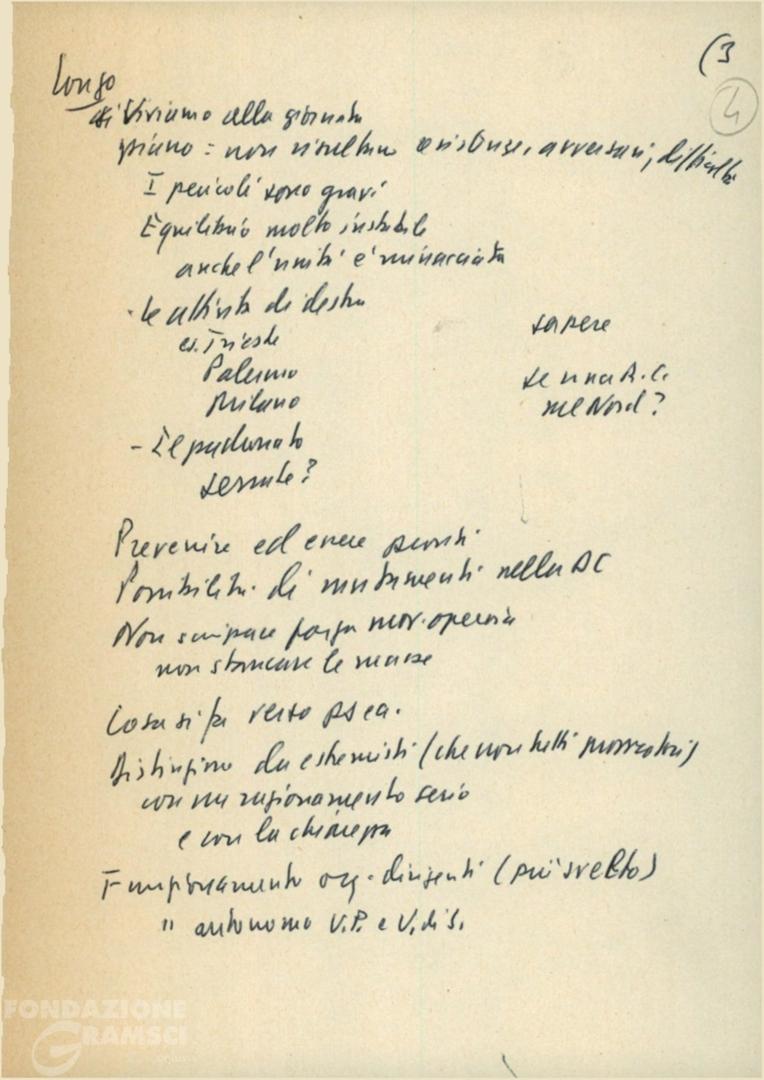 (3
4
Longo
si viviamo alla giornata
piano = non risultano esistenze, avversari, difficoltà
I pericoli sono gravi
Equilibrio molto instabile
anche l'unità è minacciata
- le attività di destra
es. Trieste
Palermo
Milano
sapere
se una D.C.
nel Nord?
- Il padronato
serrate?
Prevenire ed essere pronti
Possibilità di mutamenti nella DC
Non sciupare forza mov. operaio
non stancare le masse
Cosa si fa verso
Distinzione da estremisti (che non tutti provocatori)
con un ragionamento serio
e con la chiarezza
Funzionamento org. dirigenti (più svelto)
" autonomo U.P. e U. di S.
FONDAZIONE
GRAMSCI